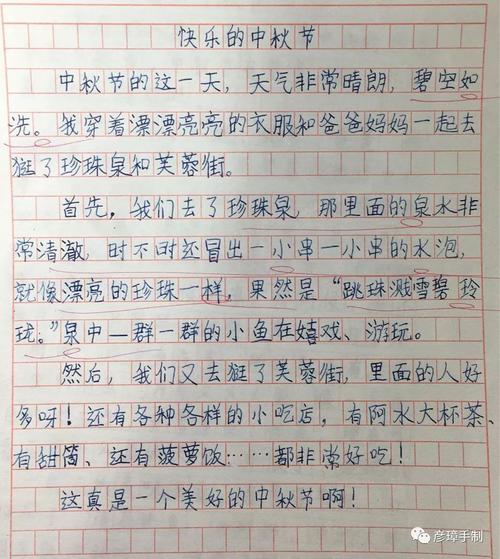 快乐的中秋节
中秋节的这一天，天气非常晴朗，碧空如
洗。我穿着漂漂亮亮的衣服和爸爸妈妈一起去
逛了珍珠泉和芙蓉街。
首先，我们去了珍珠泉，那里面的泉水非
常清澈，时不时还冒出一小串一小串的水泡，
就像漂亮的珍珠一样，果然是“跳珠溅雪碧玲
珑。”泉中一群一群的小鱼在嬉戏、游玩。
然后，我们又去逛了芙蓉街，里面的人好
多呀！还有各种各样的小吃店，有阿水大杯茶、
有甜筒、还有菠萝饭……都非常好吃！
这真是一个美好的中秋节啊！
彦璋手制